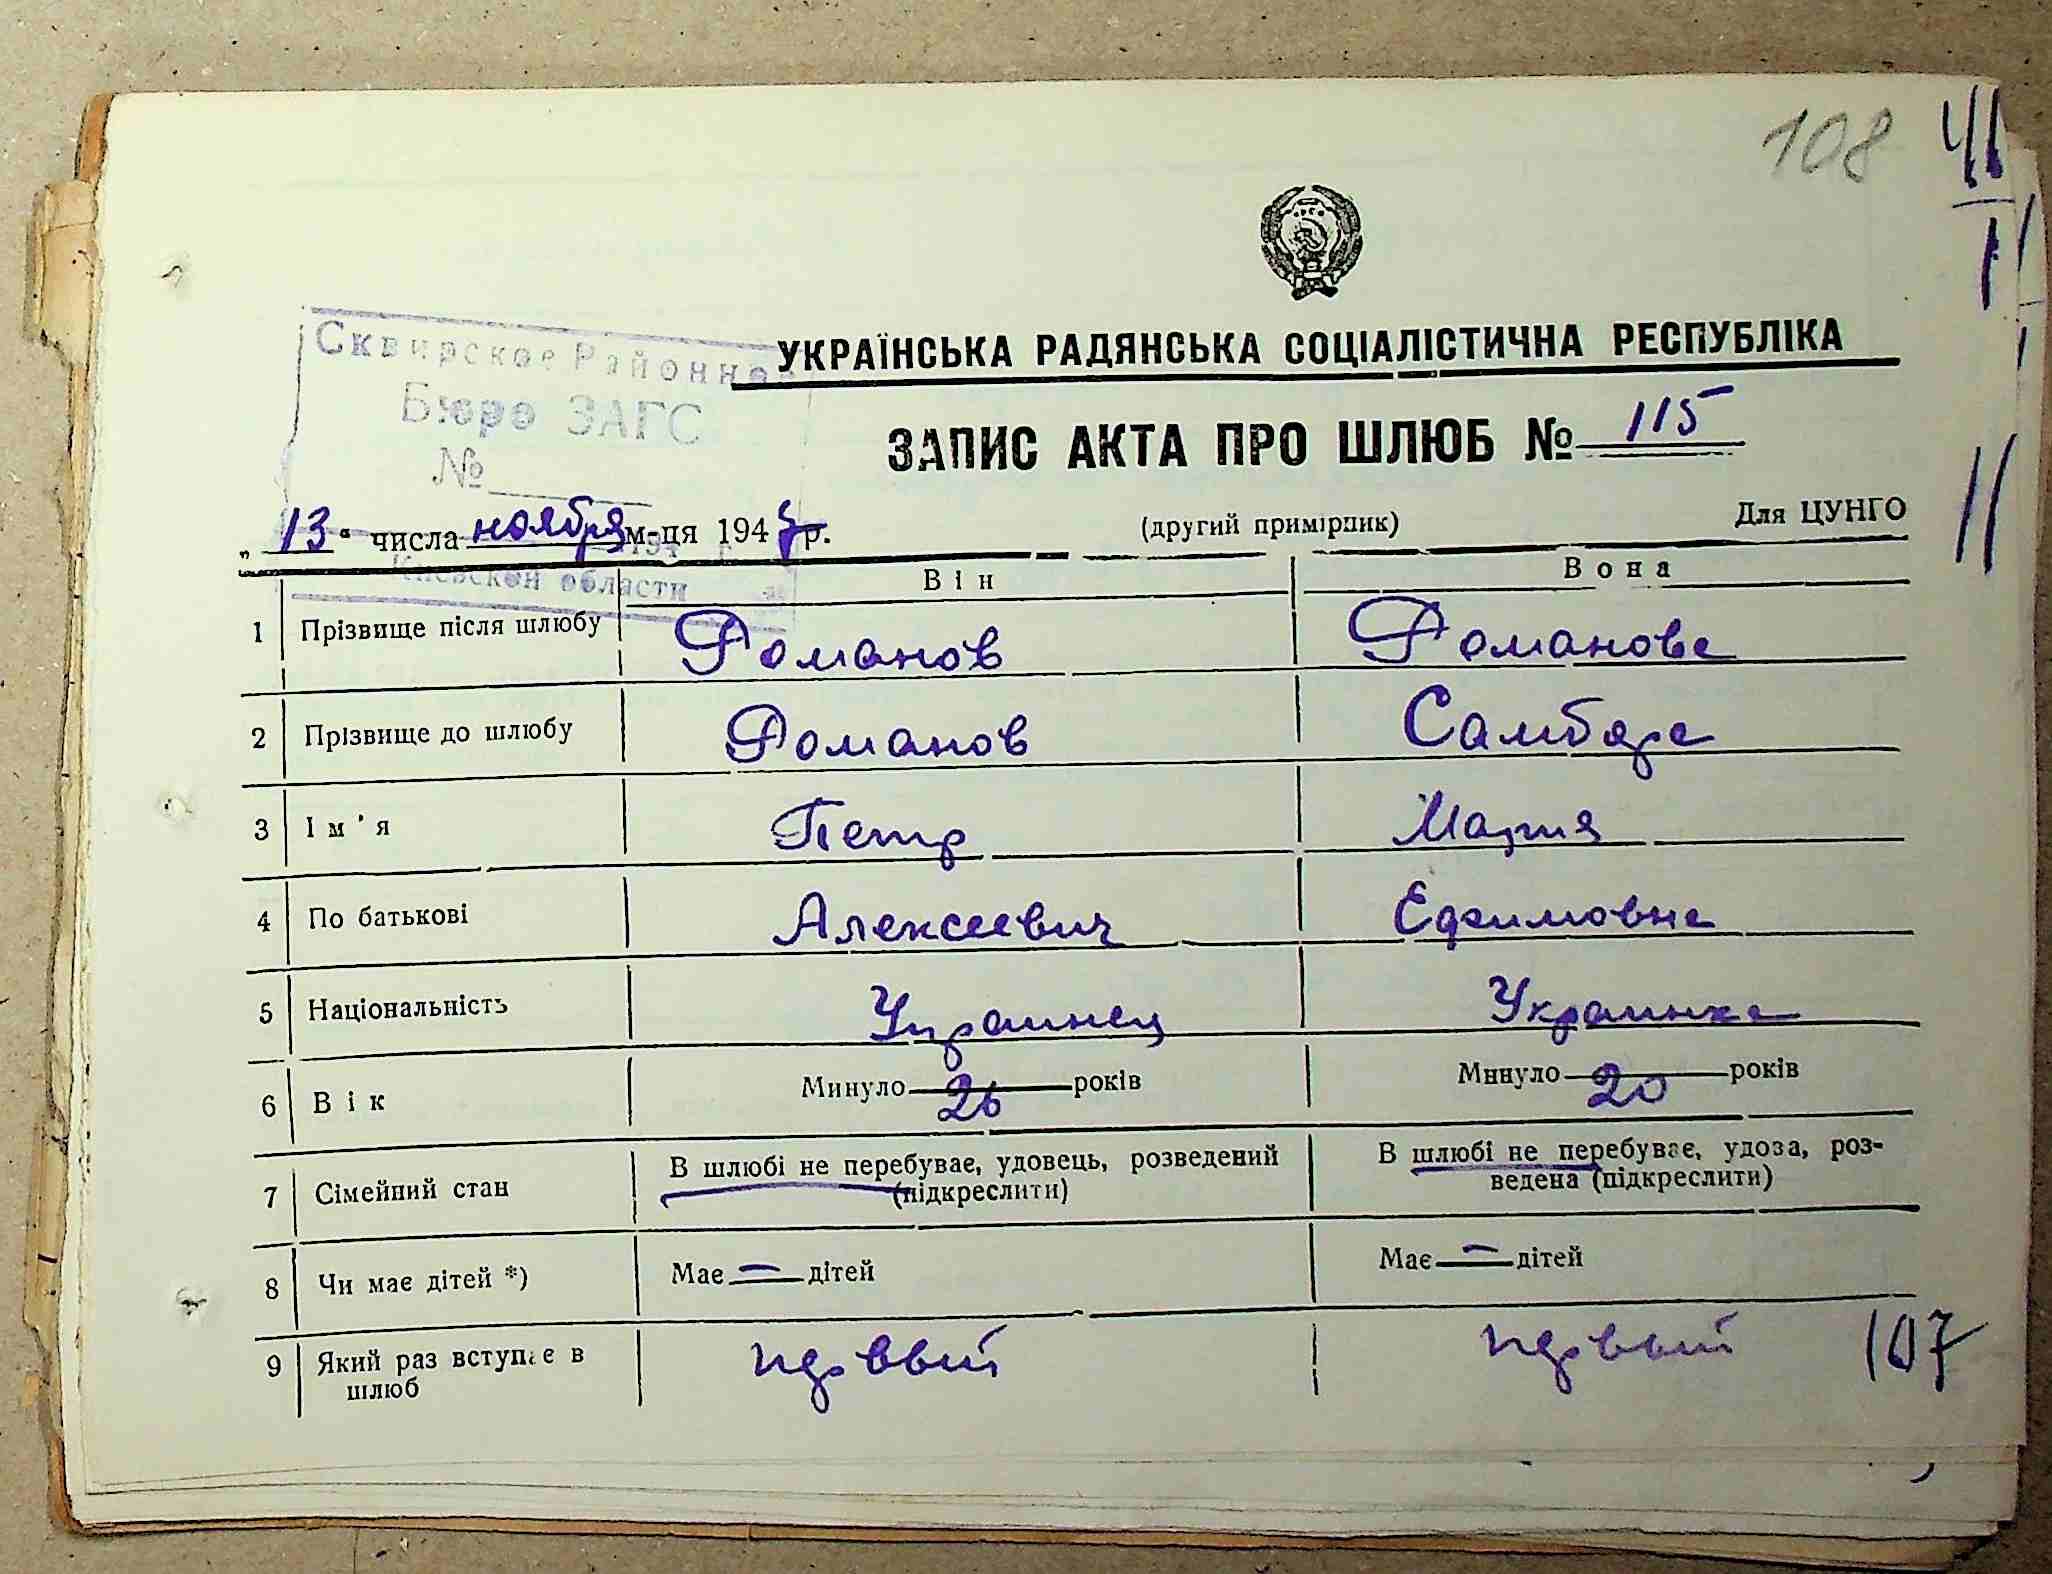 108
Сквирское Районное
Бюро ЗАГС
№
Киевской области
УКРАЇНСЬКА РАДЯНСЬКА СОЦІАЛІСТИЧНА РЕСПУБЛІКА
ЗАПИС АКТА ПРО ШЛЮБ № 115
„13“ числа ноября м-ця 194 р.
(другий примірник)
Для ЦУНГО
Він Вона
1 Прізвище після шлюбу Романов Романова
2 Прізвище до шлюбу Романов
3 Ім'я Петр Мария
4 По батькові Алексеевич Ефимовна
5 Національність Украинец Украинка
6 Вік Минуло 26 років Минуло 20 років
7 Сімейний стан В шлюбі не перебуває, удовець, розведений (підкреслити) В шлюбі не перебуває, удова, роз-
ведена (підкреслити)
8 Чи має дітей *) Має — дітей Має — дітей
9 Який раз вступає в шлюб первый первый
107